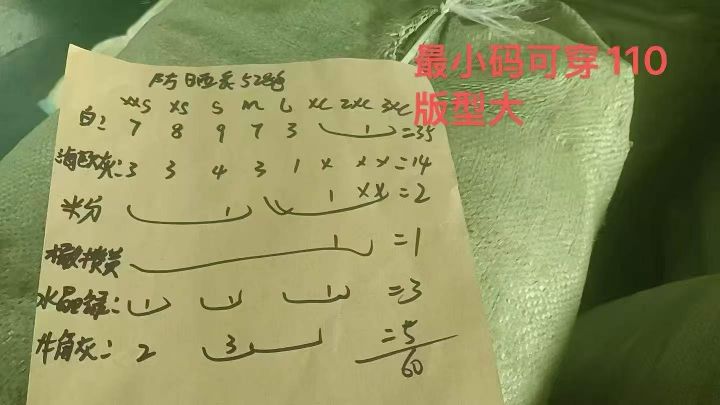 最小码可穿110
版型大
防晒衣528
XXS XS S M L XL 2XL 3XL
白: 7 8 9 7 3 1 =35
海鸥灰: 3 3 4 3 1 x x x =14
米分 1 1 xx =2
橄榄黄 1 =1
水晶绿: 1 1 1 =3
牛角灰: 2 3 =5
60